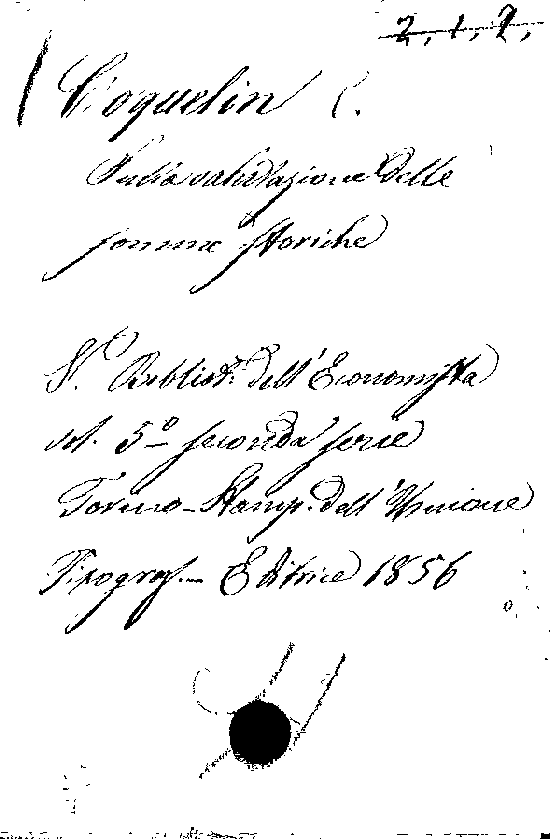 2, 1, 9,
Coquelin C.
Sulla valutazione delle
somme storiche
V. Bibliot. dell'Economista
vol. 5º seconda serie
Torino - Stamp. dell'Unione
Tipograf. - Editrice 1856